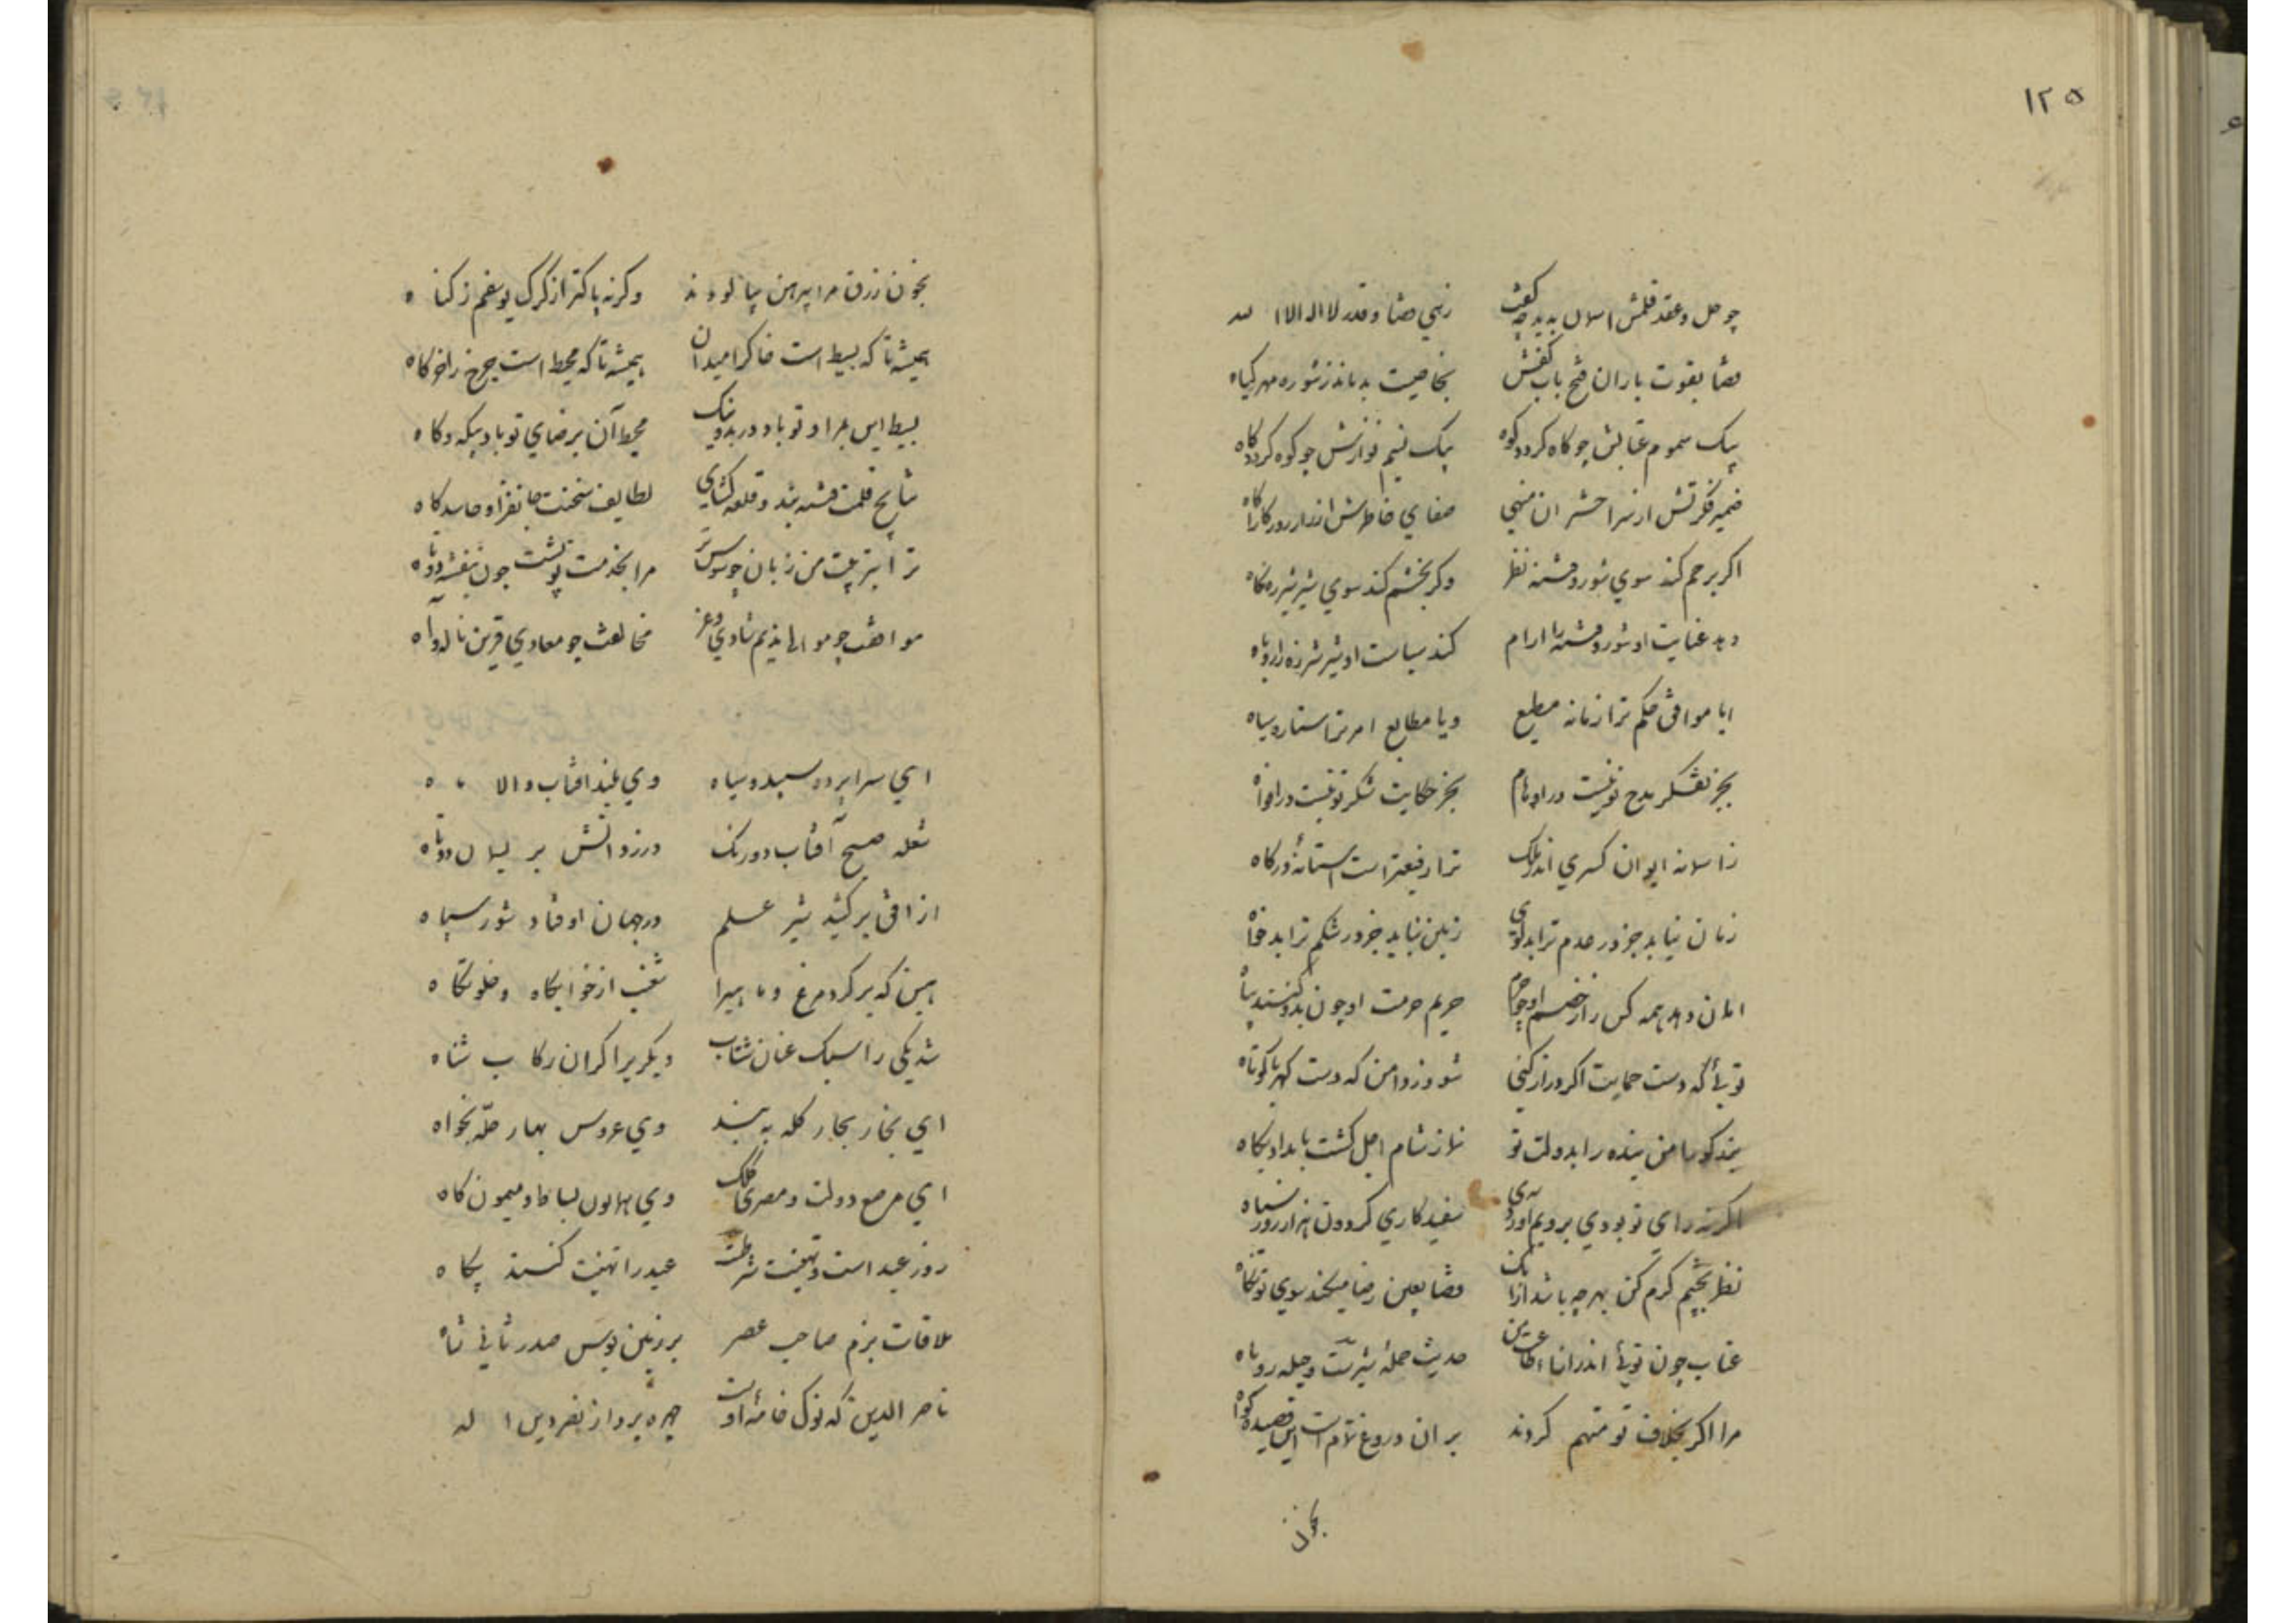 ۱۲۵
چو حل و عقد قلمش اسمان بدید چه گفت زهی قضا و قدر لا اله الا الله
قضا بقوت باران فتح باب کفش بخاصیت بدماند ز شوره مهر کیاه
بیک سموم عتابش چو کاه کردد کوه بیک نسیم نوازش چو کوه کردد کاه
ضمیر فکرتش از سر اختران منهی صفای خاطرش از راز روزکار اکاه
اکر برحم کند سوی شور و فتنه نظر وکر بخشم کند سوی شیر شرزه نکاه
دهد عنایت او شور و فتنه را ارام کند سیاست او شیر شرزه را روباه
ایا موافق حکم ترا زمانه مطیع ویا مطابع امر ترا ستاره سپاه
بجز تفکر مدح تو نیست در اوهام بجز حکایت شکر تو نیست در افواه
ز اسمانه ایوان کسری اندر ملک ترا رفیعتر است استانهٔ درکاه
زمان نیابد جز در عدم ترا بدکوی زمین نیابد جز در شکم ترا بدخواه
امان دهد همه کس را ز خصم او چو حرم حریم حرمت او چون بدو کنند پناه
تویی که دست حمایت اکر دراز کنی شود ز دامن که دست کهربا کوتاه
منم که من بنده را بدولت تو نماز شام اجل کشت بامداد پکاه
اکر نه رای تو بودی برویم اوردی سفیدکاری کردون هزار روز سیاه
نظر بچشم کرم کن بهر چه باشد از انک قضا بعین رضا میکند سوی تو نکاه
عتاب چون تویی اندر ازاء طاعت من حدیث حملهٔ شیرست و حیله روباه
مرا اکر بخلاف تو متهم کردند بر ان دروغ تمام است این قصیده کواه
بخون
بخون زرق مرا پیرهن بیالودند وکرنه پاکتر از کرک یوسفم ز کناه
همیشه تا که بسیط است خاک را میدان همیشه تا که محیط است چرخ را خرکاه
بسیط این بمراد تو باد در بد و نیک محیط آن برضای تو باد بیکه و کاه
نتایج قلمت فتنه بند و قلعه کشای لطایف سخنت جانفزا و حاسدکاه
ترا بتربیت من زبان چو سوسن تر مرا بخدمت تو پشت چون بنفشه دوتاه
موافقت چو موالی ندیم شادی و عز مخالفت چو معادی قرین ناله و آه
ای سراپرده سپید و سیاه وی بلند افتاب والا ماه
شعله صبح آفتاب دو رنک در زد آتش بر دوتاه
از افق برکشید شیر علم در جهان اوفتاد شور سپاه
هین که برکرد مرغ و ماهی را شغب از خوابکاه و خلوتکاه
شد یکی را سبک عنان شتاب دیکری را کران رکاب شناه
ای بخار بحار کله ببند وی عروس بهار حله بخواه
ای مرصع دوات و مصری کلک وی همایون بساط و میمون کاه
روز عید است و تهنیت شرطست عید را تهنیت کنند پکاه
ملاقات بزم صاحب عصر بر زمین بوس صدر ثانی شاه
ناصر الدین که نوک خامهٔ اوست چهره پرداز نصر دین اله